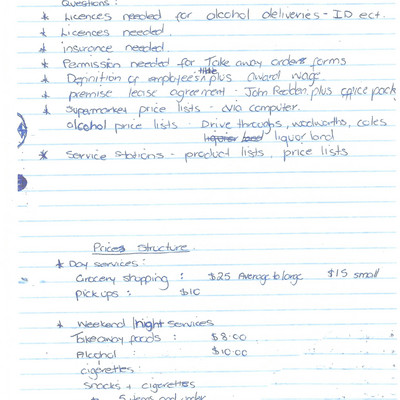 Questions:
* Licences needed for alcohol deliveries - ID ect.
* Licences needed.
* insurance needed.
* Permission needed for Take away orders forms
* Definition of employees title plus award wage.
* premise lease agreement - John Redden plus office pack
* Supermarket price lists - via computer.
alcohol price lists - Drive throughs, woolworths, coles
liquor land
* Service Stations - product lists, price lists
Prices Structure.
* Day services:
Grocery shopping : $25 Average to large $15 small
Pick ups : $10
* Weekend/night services
Takeaway foods : $8.00
Alcohol : $10.00
cigarettes:
Snacks + cigarettes
* 5 items and under